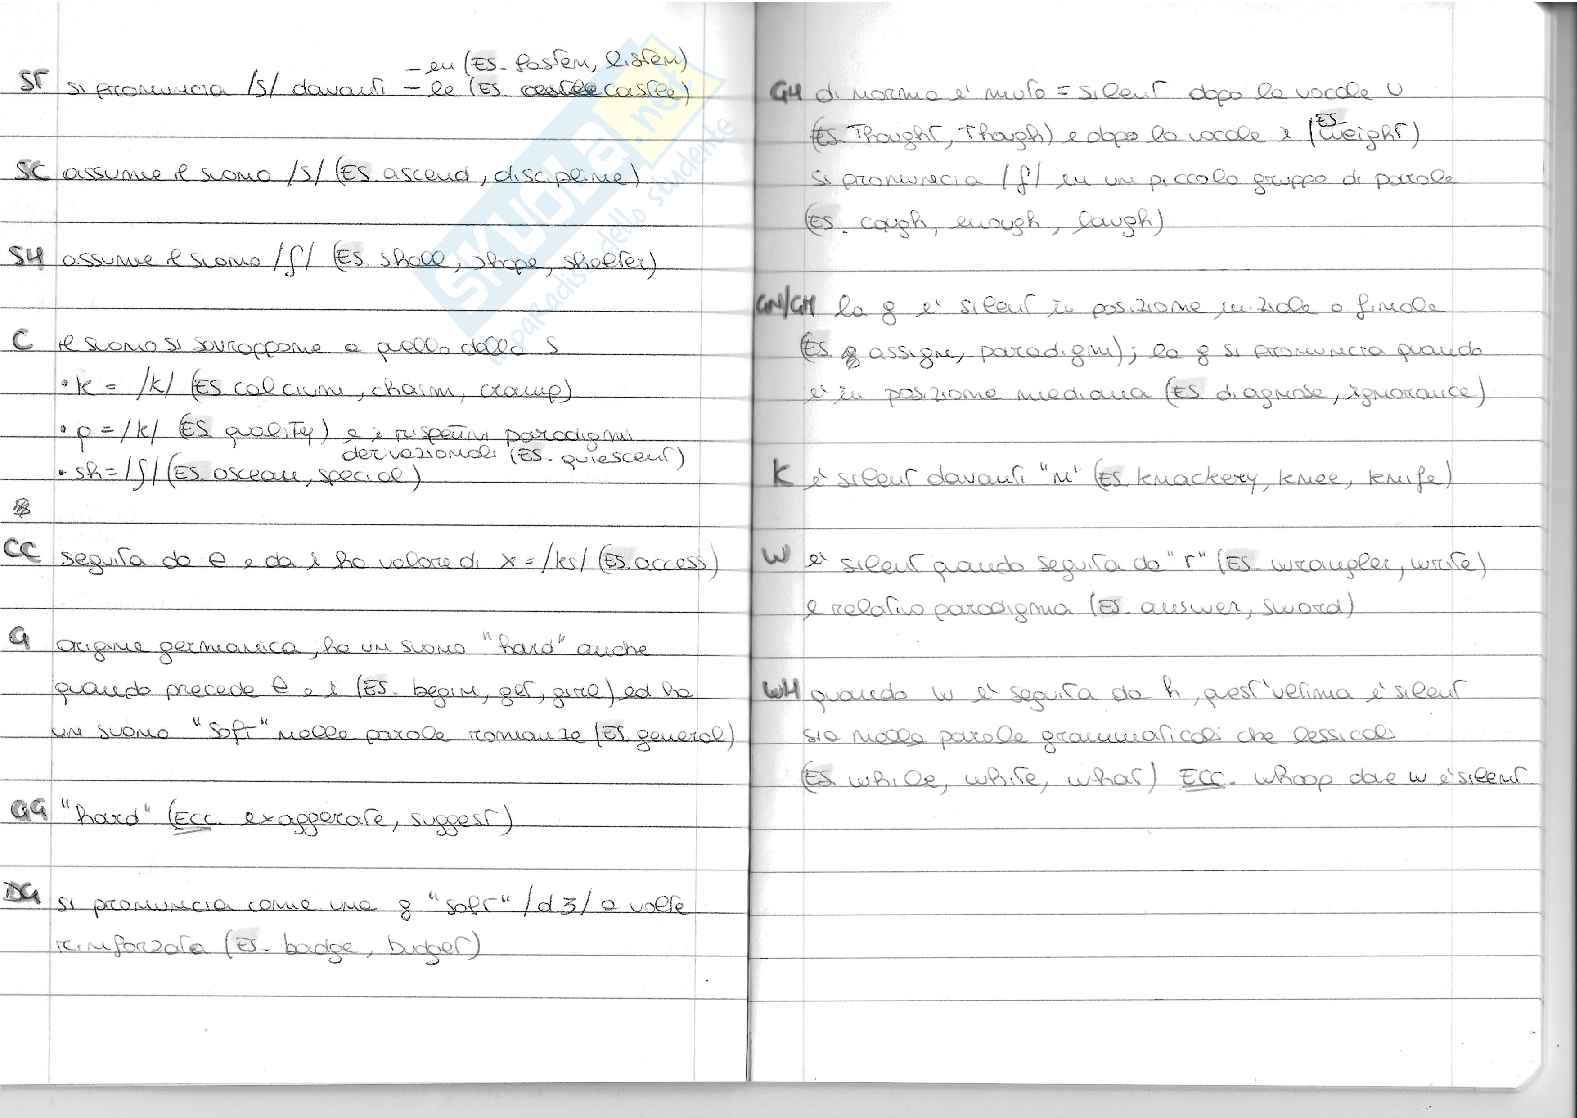 -en (ES. fasten, listen)
ST si pronuncia /s/ davanti - le (ES. castle)
SC assume il suono /s/ (ES. ascend, discipline)
SH assume il suono /ʃ/ (ES. shall, shape, shelter)
C il suono si sovrappone a quello della S
• k = /k/ (ES calcium, chaim, cramp)
• q = /k/ (ES quality) e i rispettivi paradigmi
derivazionali (ES. quiescent)
• sh = /ʃ/ (ES. oscean, special)
CC seguita da e e da i ha valore di x = /ks/ (ES. access)
G origine germanica, ha un suono "hard" anche
quando precede e e i (ES. begin, get, girl) ed ha
un suono "soft" nelle parole romanze (ES. general)
GG "hard" (Ecc. exaggerate, suggest)
DG si pronuncia come una g "soft" /dʒ/ a volte
rinforzata (ES. badge, budget)
GH di norma è muto = silent dopo la vocale U
(ES. Thought, Though) e dopo la vocale i (ES. weight)
si pronuncia /f/ in un piccolo gruppo di parole
(ES. cough, enough, laugh)
GN/GM la g è silent in posizione iniziale o finale
(ES. assign, paradigm); la g si pronuncia quando
è in posizione mediana (ES diagnose, ignorance)
K è silent davanti "n" (ES. knackery, knee, knife)
W è silent quando seguita da "r" (ES. wrangler, write)
e relativo paradigma (ES. answer, sword)
WH quando w è seguita da h, quest'ultima è silent
sia nelle parole grammaticali che lessicali
(ES while, white, what) ECC. whoop dove w è silent
SKUOLA.net
il paradiso dello studente